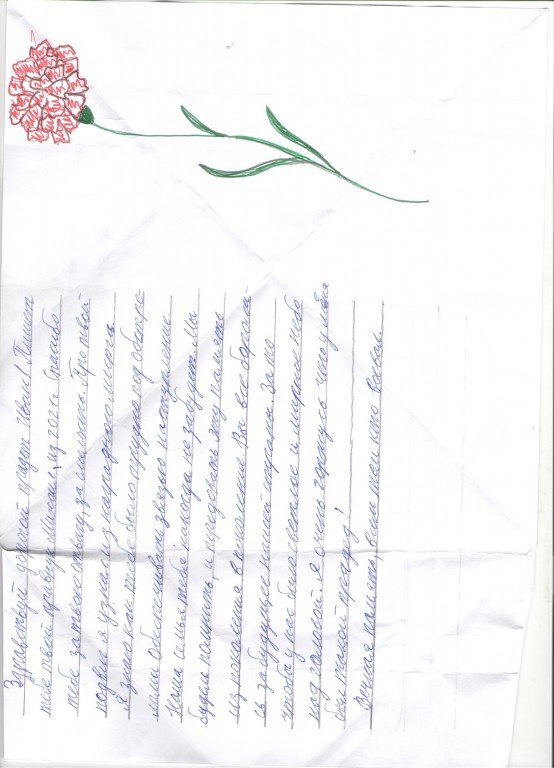 Здравствуй дорогой прадед Иван! Пишет
тебе твой правнук Михаил, из 2021г. Спасибо
тебе за твою отвагу, за смелость. Про твой
подвиг я узнал из наградного листа.
Я знаю как тебе было трудно под обстре
лами обеспечивать связью наступление
Наша семья тебя никогда не забудет. Мы
будем помнить, и передавать эту память
из поколения в поколение. Вы все боролι-
сь за будущее нашей страны. За то
чтобы у нас было светлое и мирное небо
над головой. Я очень горжусь что у меня
был такой прадед!
Вечная память, всем тем кто воевал.